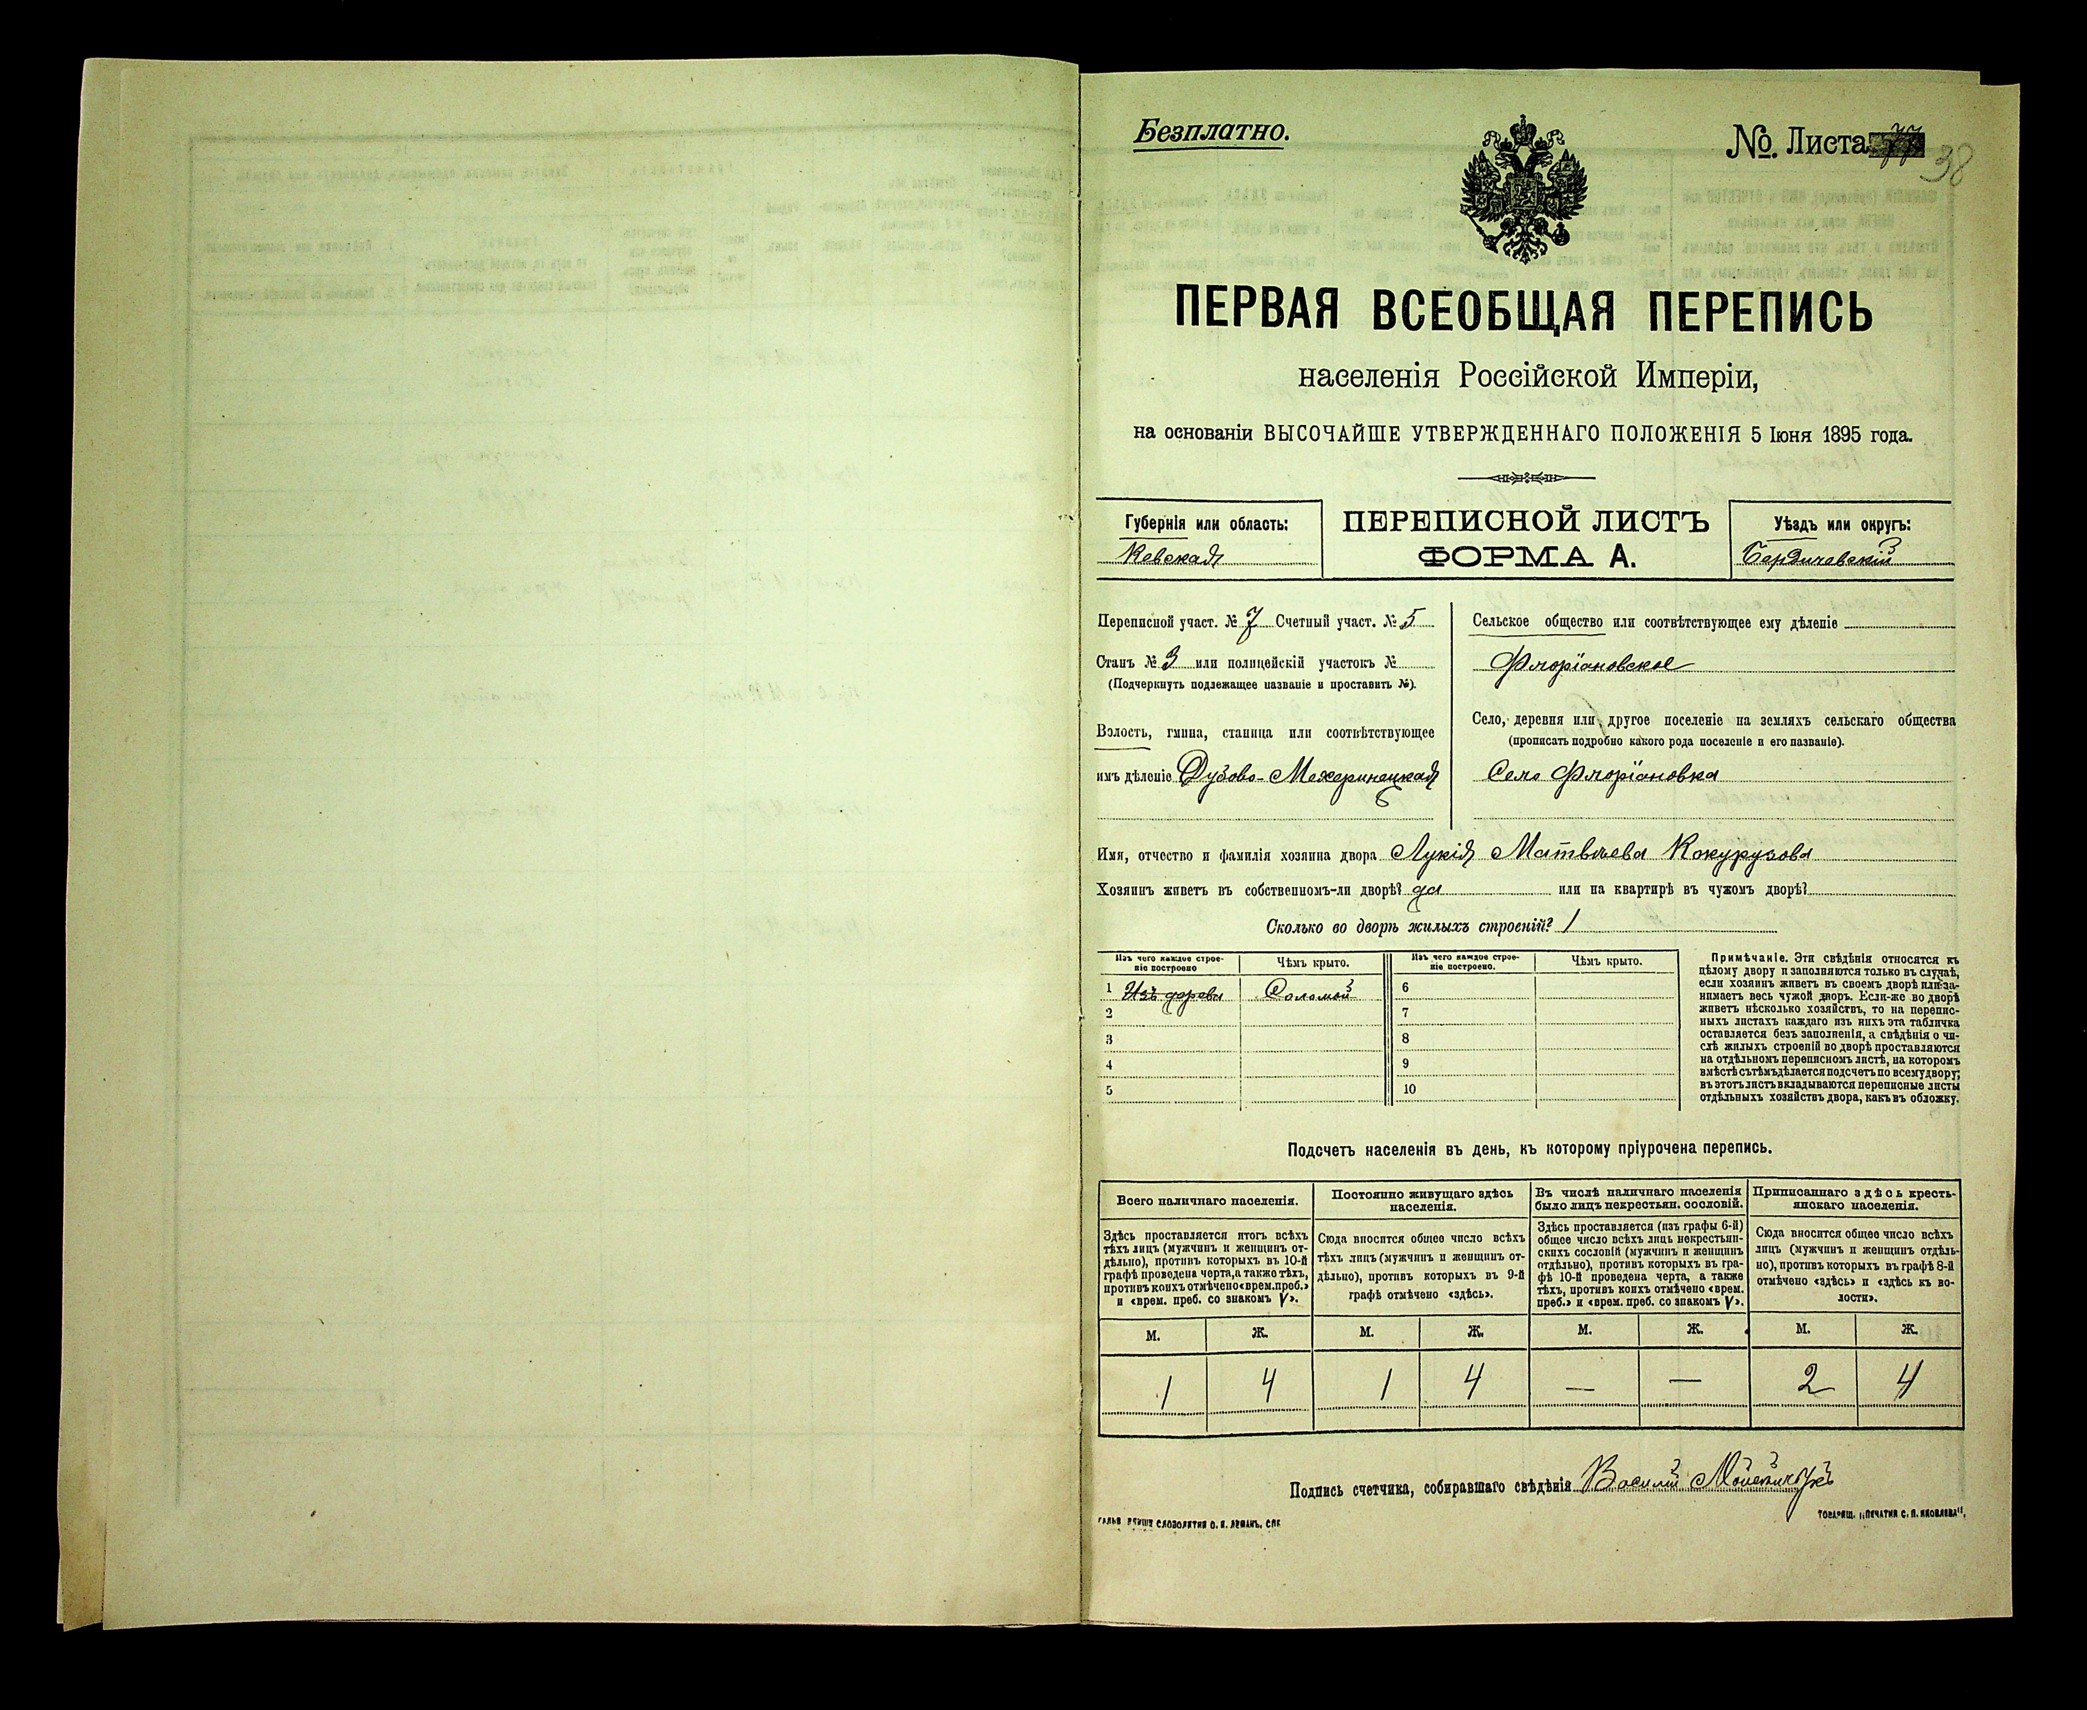 Безплатно.
№. Листа 77
38
ПЕРВАЯ ВСЕОБЩАЯ ПЕРЕПИСЬ
населенія Россійской Имперіи,
на основаніи ВЫСОЧАЙШЕ УТВЕРЖДЕННАГО ПОЛОЖЕНІЯ 5 Іюня 1895 года.
Губернія или область:
Кевская
ПЕРЕПИСНОЙ ЛИСТЪ
ФОРМА А.
Уѣздъ или округъ:
Бердичевскій
Переписной участ. № 7 Счетный участ. № 5
Станъ № 3 или полицейскій участокъ №
(Подчеркнуть подлежащее названіе и проставить №).
Волость, гмина, станица или соотвѣтствующее
имъ дѣленіе Дубово-Мехеринецкая
Сельское общество или соотвѣтствующее ему дѣленіе
Флоріановское
Село, деревня или другое поселеніе на земляхъ сельскаго общества
(прописать подробно какого рода поселеніе и его названіе).
Село Флоріановка
Имя, отчество и фамилія хозяина двора Лукія Матвѣева Кокурузова
Хозяинъ живетъ въ собственномъ-ли дворѣ? да или на квартирѣ въ чужомъ дворѣ?
Сколько во дворѣ жилыхъ строеній? 1
Изъ чего каждое строе-
ніе построено
Чѣмъ крыто.
1 Изъ дерева Соломой
2
3
4
5
Изъ чего каждое строе-
ніе построено.
Чѣмъ крыто.
6
7
8
9
10
Примѣчаніе. Эти свѣдѣнія относятся къ
цѣлому двору и заполняются только въ случаѣ,
если хозяинъ живетъ въ своемъ дворѣ или за-
нимаетъ весь чужой дворъ. Если-же во дворѣ
живетъ нѣсколько хозяйствъ, то на перепис-
ныхъ листахъ каждаго изъ нихъ эта табличка
оставляется безъ заполненія, а свѣдѣнія о чи-
слѣ жилыхъ строеній во дворѣ проставляются
на отдѣльномъ переписномъ листѣ, на которомъ
вмѣстѣ съ тѣмъ дѣлается подсчетъ по всему двору;
въ этотъ листъ вкладываются переписные листы
отдѣльныхъ хозяйствъ двора, какъ въ обложку.
Подсчетъ населенія въ день, къ которому пріурочена перепись.
Всего наличнаго населенія.
Здѣсь проставляется итогъ всѣхъ
тѣхъ лицъ (мужчинъ и женщинъ от-
дѣльно), противъ которыхъ въ 10-й
графѣ проведена черта, а также тѣхъ,
противъ коихъ отмѣчено «врем. преб.»
и «врем. преб. со знакомъ V».
Постоянно живущаго здѣсь
населенія.
Сюда вносится общее число всѣхъ
тѣхъ лицъ (мужчинъ и женщинъ от-
дѣльно), противъ которыхъ въ 9-й
графѣ отмѣчено «здѣсь».
Въ числѣ наличнаго населенія
было лицъ некрестьян. сословій.
Здѣсь проставляется (изъ графы 6-й)
общее число всѣхъ лицъ некрестьян-
скихъ сословій (мужчинъ и женщинъ
отдѣльно), противъ которыхъ въ гра-
фѣ 10-й проведена черта, а также
тѣхъ, противъ коихъ отмѣчено «врем.
преб.» и «врем. преб. со знакомъ V».
Приписаннаго здѣсь кресть-
янскаго населенія.
Сюда вносится общее число всѣхъ
лицъ (мужчинъ и женщинъ отдѣль-
но), противъ которыхъ въ графѣ 8-й
отмѣчено «здѣсь» и «здѣсь къ во-
лости».
М. Ж. М. Ж. М. Ж. М. Ж.
1 4 1 4 — — 2 4
Подпись счетчика, собиравшаго свѣдѣнія Василій
СЛОВОЛИТНЯ О. И. ЛЕМАНЪ. СПБ
ТОВАРИЩ. „ПЕЧАТНЯ С. П. ЯКОВЛЕВА".